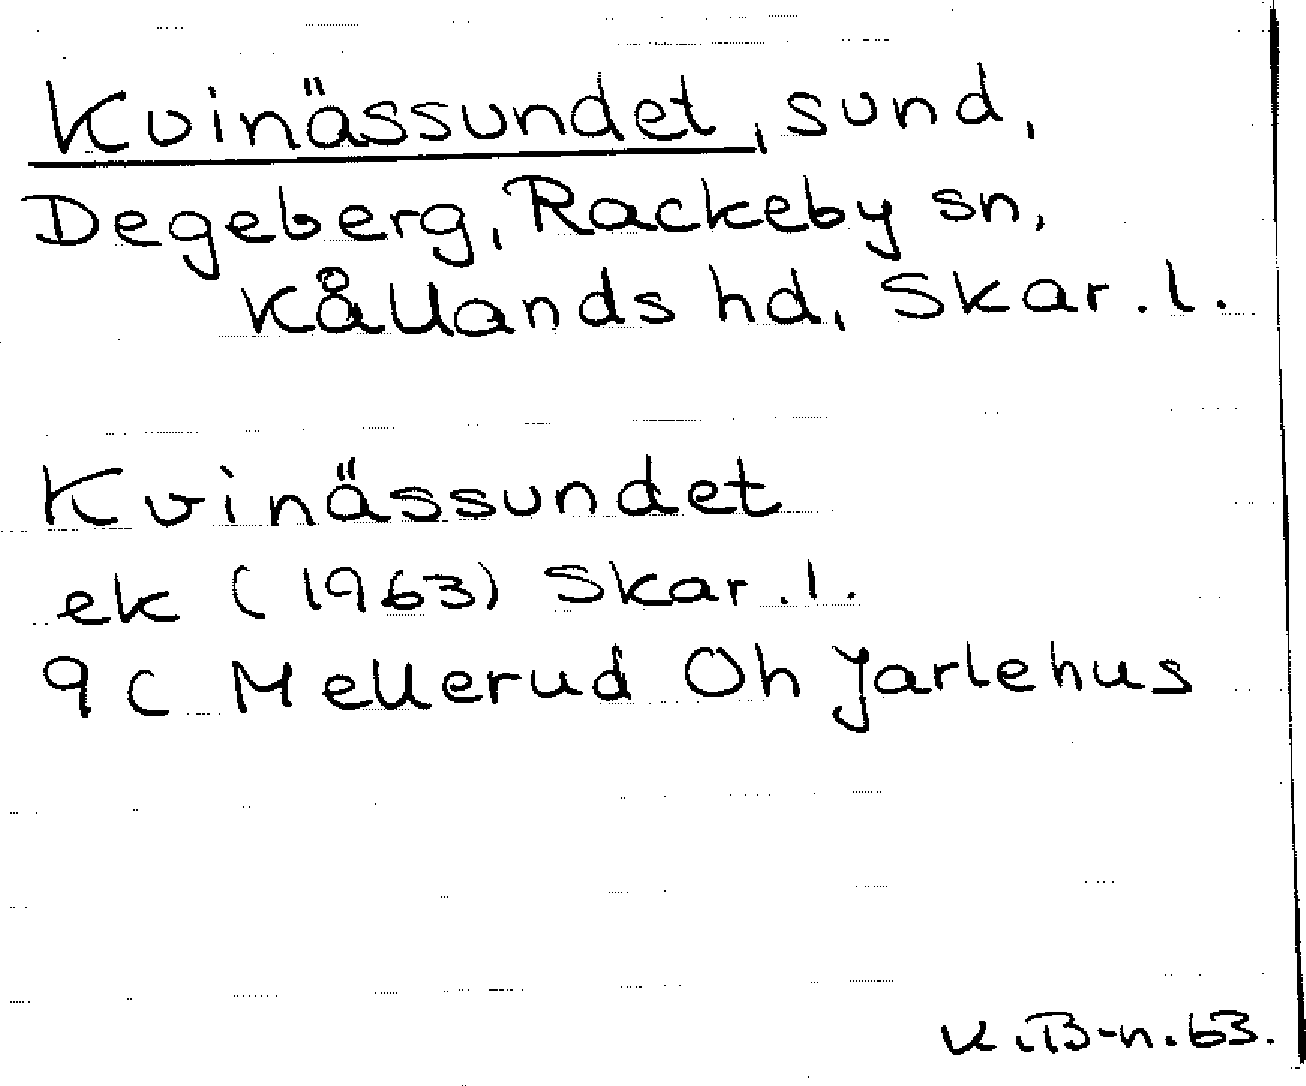 Kvinässundet, sund,
Degeberg, Rackeby sn,
Kållands hd, Skar. l.
Kvinässundet
ek (1963) Skar. l.
9C Mellerud Öh Jarlehus
K. B-n. 63.